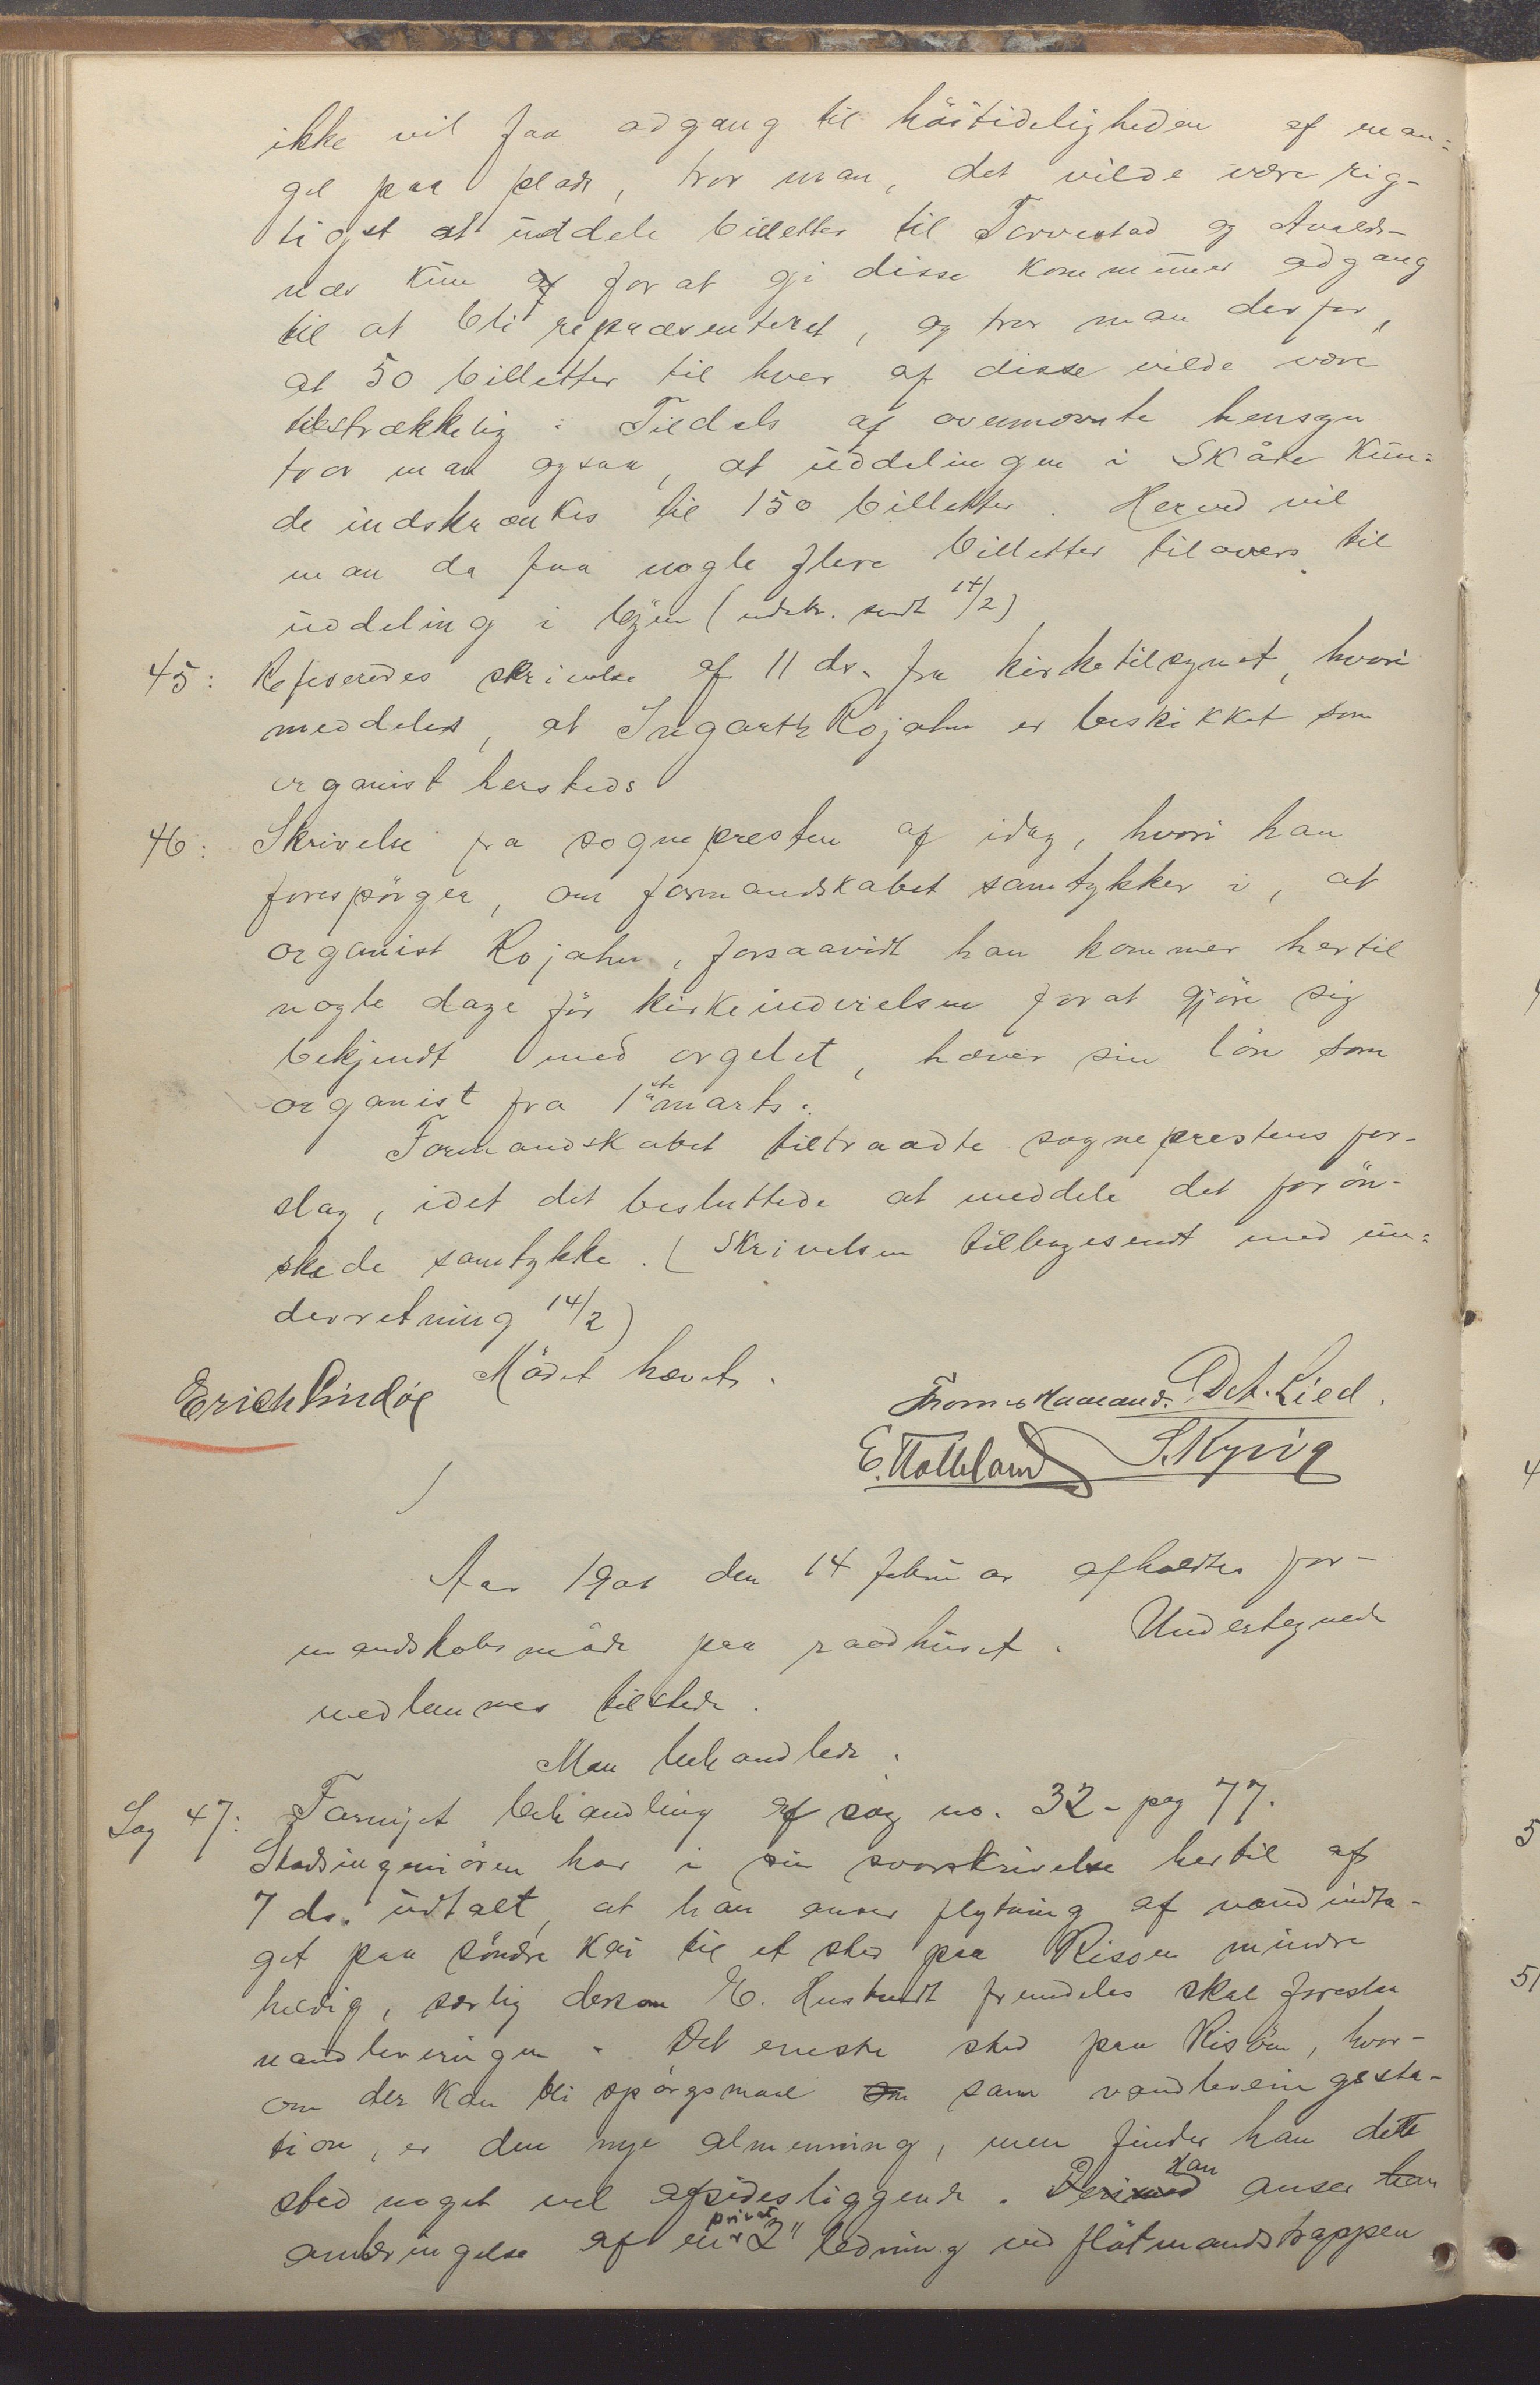 ikke vil faa adgang til höitideligheden af man=
gel paa plads, tror man, det vilde være rig-
tigst at uddele billetter til Torvestad og Avalds-
nes kun af for at gi disse kommuner adgang
til at bli repræsenteret, og tror man derfor,
at 50 billetter til hver af disse vilde være
tilstrækkelig. Tildels af ovennævnte hensyn
tror man ogsaa, at uddelingen i Skåre kun=
de indskrænkes til 150 billetter. Herved vil
man da faa nogle flere billetter tilovers til
uddeling i byen (udskr. sendt 14/2)
45: Refereredes skrivelse af 11 ds. fra kirketilsynet, hvori
meddeles, at Ingarth Rojahn er beskikket som
organist hersteds
46: Skrivelse fra sognepresten af idag, hvori han
forespörger, om formandskabet samtykker i, at
organist Rojahn, forsaavidt han kommer hertil
nogle dage för kirkeindvielsen for at gjöre sig
bekjendt med orgelet, hæver sin lön som
organist fra 1ste marts.
Formandskabet tiltraadte sogneprestens for-
slag, idet det besluttede at meddele det forön-
skede samtykke. (Skrivelsen tilbagesendt med un=
derretning 14/2)
Mödet hævet.
Erich Lindøe
Thomas Haaland. Det. Lied.
E. Hatteland S. Kyvig
Aar 1901 den 14 februar afholdtes for-
mandskabsmöde paa raadhuset. Undertegnede
medlemmer tilstede.
Man behandlede:
Sag 47: Fornyet behandling af sag no. 32 - pag 77.
Stadsingeniören har i sin svarskrivelse hertil af
7 ds. udtalt, at han anser flytning af vandindta-
get paa söndre kai til et sted paa Risöen mindre
heldig, særlig dersom E. Hustvedt fremdeles skal forestaa
vandleveringen. Det eneste sted paa Risöen, hvor-
om der kan bli spörgsmaal om som vandleveringssta-
tion, er den nye almenning, men finder han dette
sted noget vel afsidesliggende. Derimod Han anser han
anbringelse af en privat 2" ledning ved flötmandstrappen